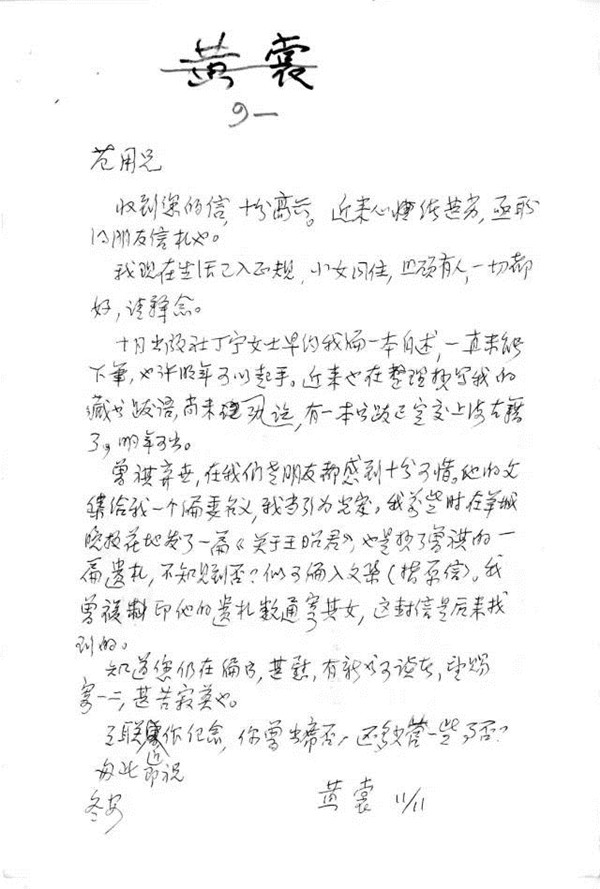 黄裳
九一
范用兄
收到您的信，十分高兴。近来心情
的朋友信札也。
我现在生活已入正规，小女同住，照顾有人，一切都
好，请释念。
十月出版社丁宁女士早约我编一本自述，一直未能
下笔，也许明年可以起手。近来也在整理抄写我的
藏书跋语，尚未，有一本已定交上海古籍
了，明年可出。
曾祺弃世，在我们老朋友都感到十分可惜。他的文
集给我一个编委名义，我当引为光荣。我前些时在羊城
晚报花地发了一篇《关于王昭君》，也是抄了曾祺的一
篇遗札，不知见到否？似可编入文集（指原信）。我
曾复印他的遗札数通寄其女，这封信是后来找
到的。
知道您仍在编书，甚慰，有新书可读，望赐
寄一二，甚苦寂寞也。
纪念，你曾出席否？一些可否？
匆此即祝
近
冬安
黄裳 11/11